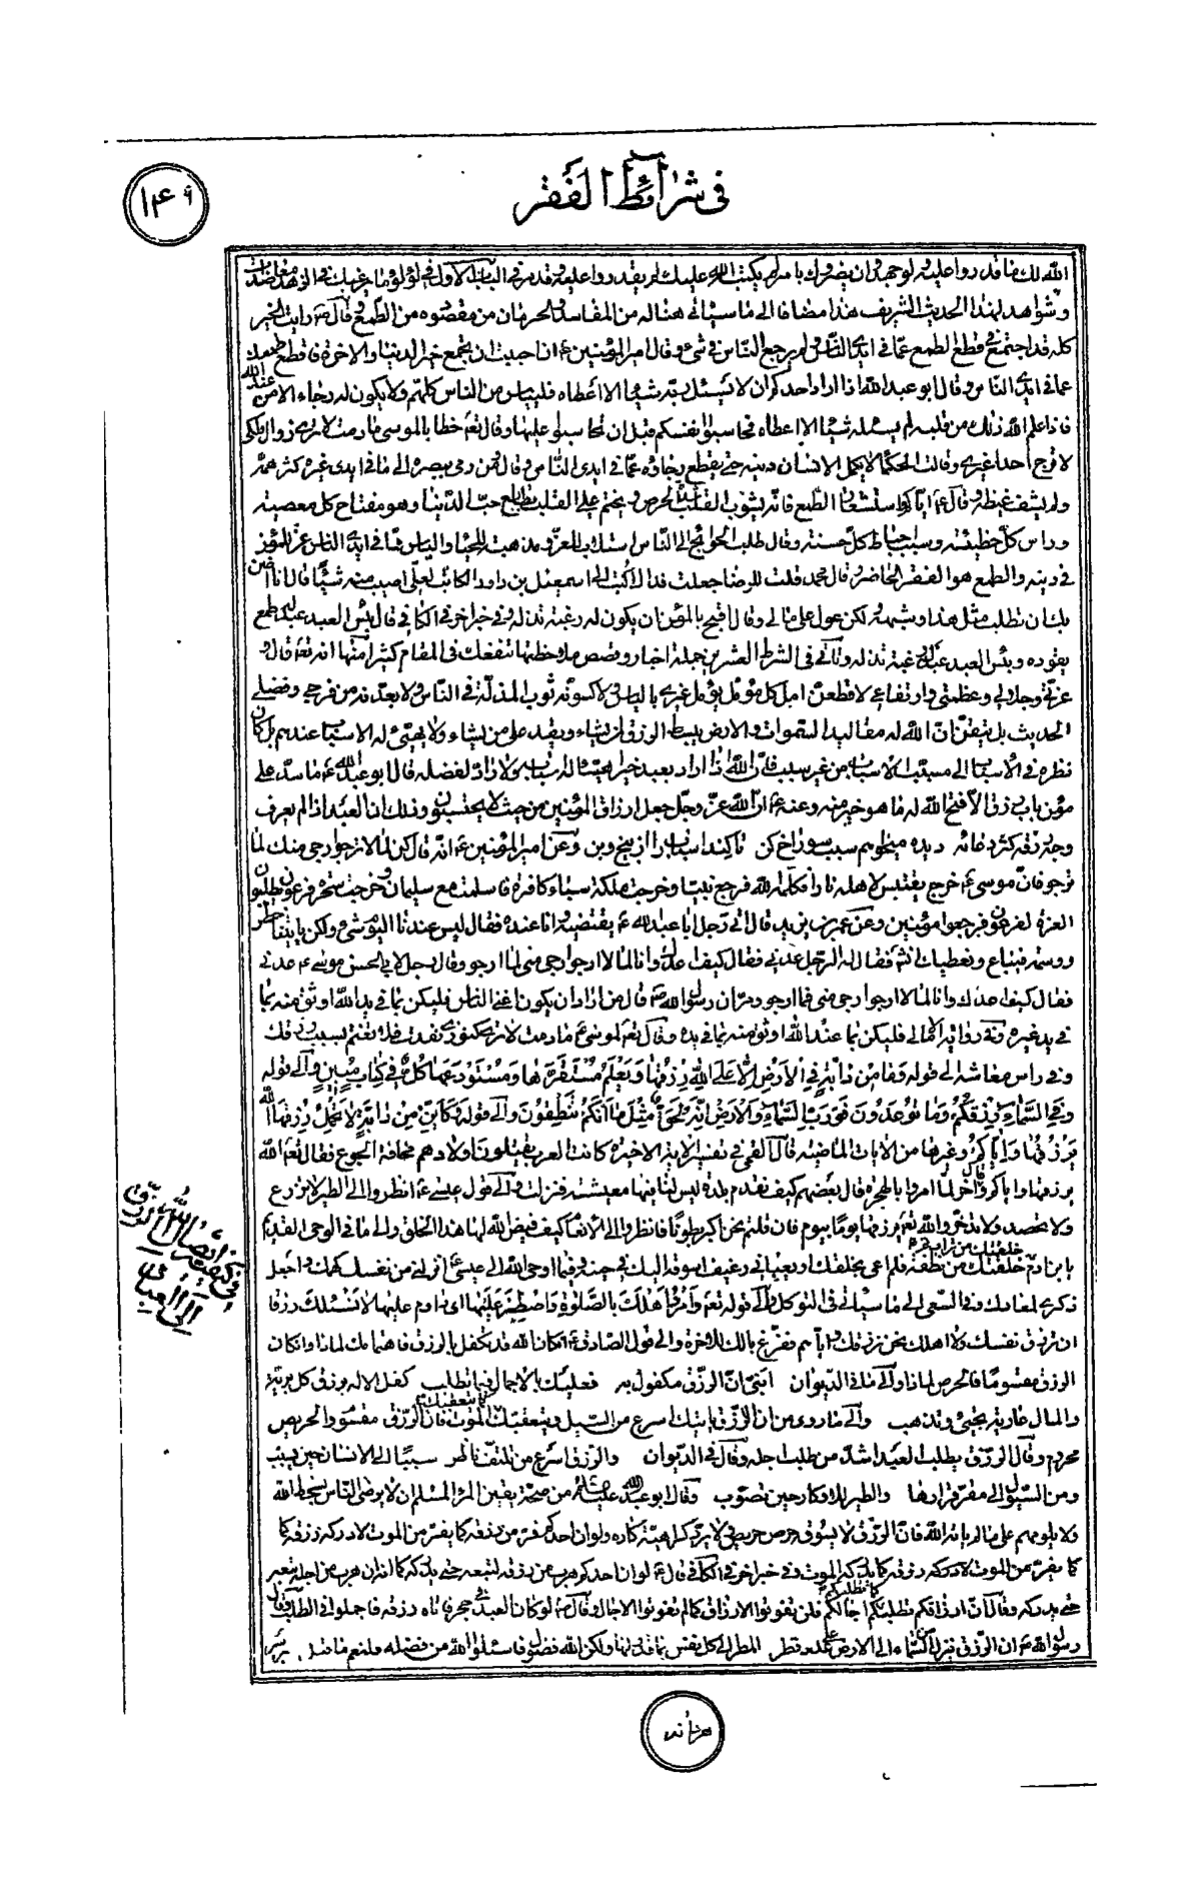 في شرائط الفقر
۱۴۶
الله لك ما قدروا عليه ولو جهدوا ان يضروك بامر لم يكتبه الله عليك لم يقدروا عليه وقد مر في الباب الاول في لؤلؤ
وشواهد لهذا الحديث الشريف هذا مضافا الى ما سياتي هنا له من المفاسد والحرمان من مقصوده من الطمع وقال رايت الخير
كله قد اجتمع في قطع الطمع عما في ايدي الناس ومن لم يرجع الناس في شيء وقال امير المؤمنين ع ان احببت ان تجمع خير الدنيا والاخرة فاقطع طمعك
عما في ايدي الناس وقال ابو عبد الله اذا اراد احدكم ان لا يسئل ربه شيئا الا اعطاه فلييأس من الناس كلهم ولا يكون له رجاء الا من عند الله
فاذا علم الله ذلك من قلبه لم يسئله شيئا الا اعطاه فحاسبوا انفسكم قبل ان تحاسبوا عليها وقال تعم خطابا لموسى ما دمت لا ترى زوال ملكي
لا ترج احدا غيري وقالت الحكماء لا يكمل الانسان دينه حتى يقطع رجاؤه عما في ايدي الناس وقال من رمى ببصره الى ما في ايدي غيره كثر همه
ولم يشف غيظه وقال ع اياك واستشعار الطمع فانه يشوب القلب شدة الحرص ويختم على القلب بطابع حب الدنيا وهو مفتاح كل معصية
وراس كل خطيئة وسبب احباط كل حسنة وقال طلب الحوائج الى الناس استلاب للعز ومذهبة للحياء والياس مما في ايدي الناس عز للمؤمن
في دينه والطمع هو الفقر الحاضر وقال محمد قلت للرضا جعلت فداك اكتب الى اسمعيل بن داود الكاتب لعلي اصيب منه شيئا قال انا اضن
بك ان تطلب مثل هذا وشبهه ولكن عول على مالي وقال اقبح بالمؤمن ان يكون له رغبة تذله وفي خبر اخر في الكافي قال بئس العبد عبد له طمع
يقوده وبئس العبد عبد له رغبة تذله وتاتي في الشرط العشرين جملة اخبار وقصص ملاحظتها تنفعك في المقام كثيرا منها انه تعم قال و
عزتي وجلالي وعظمتي وارتفاعي لاقطعن امل كل مؤمل يؤمل غيري بالياس ولاكسونه ثوب المذلة في الناس ولابعدنه من فرجي وفضلي
الحديث بل يتيقن ان الله له مقاليد السموات والارض يبسط الرزق لمن يشاء ويقدر على من يشاء ولا يهيئ له الاسباب عندهم بل كان
نظره في الاسباب الى مسبب الاسباب من غير سبب فان الله اذا اراد بعبد خيرا هيئا له اسبابه ولا راد لفضله قال ابو عبد الله ع ما سد على
مؤمن باب رزق الا فتح الله له ما هو خير منه وعنه ع ان الله عز وجل جعل ارزاق المؤمنين من حيث لا يحتسبون وذلك ان العبد اذا لم يعرف
وجه رزقه كثر دعائه ديده ميخواهم سبب سوراخ كن تا كند اسباب را از بيخ وبن وعن امير المؤمنين ع انه قال كن لما لا ترجو ارجى منك لما
ترجو فان موسى ع خرج يقتبس لاهله نارا فكلمه الله فرجع نبيا وخرجت ملكة سباء كافرة فاسلمت مع سليمان وخرجت سحرة فرعون يطلبون
العزة لفرعون فرجعوا مؤمنين وعن عمر بن يزيد قال اتى رجل ابا عبد الله ع يقتضيه وانا عنده فقال ليس عندنا اليوم شيء ولكن ياتينا خطر
ووسمة فيباع ونعطيك انشاء الله فقال له الرجل عدني فقال كيف اعدك وانا لما لا ارجو ارجى مني لما ارجو وقال رجل لابي الحسن موسى ع عدني
فقال كيف اعدك وانا لما لا ارجو ارجى مني لما ارجو ومر ان رسول الله ص قال من اراد ان يكون اغنى الناس فليكن بما في يد الله اوثق منه بما
في يد غيره وفي رواية الامالي فليكن بما عند الله اوثق منه بما في يده وقال تعم لموسى ع ما دمت لا ترى كنوزي نفدت فلا تغتم بسبب رزقك
وفي راس معاشه الى قوله وما من دابة في الارض الا على الله رزقها ويعلم مستقرها ومستودعها كل في كتاب مبين والى قوله
وفي السماء رزقكم وما توعدون فورب السماء والارض انه لحق مثل ما انكم تنطقون والى قوله وكاين من دابة لا تحمل رزقها الله
يرزقها واياكم وغيرها من الايات الماضية قال القمي في تفسير الاية الاخيرة كانت العرب يقتلون اولادهم مخافة الجوع فقال تعم الله
يرزقها واياكم وقال اخر لما امروا بالهجرة قال بعضهم كيف نقدم بلدة ليس لنا بها معيشة فنزلت والى قول عيسى ع انظروا الى الطير لا تزرع
ولا تحصد ولا تدخر والله تعم يرزقها يوما بيوم فان قلتم نحن اكبر بطونا فانظروا الى الانعام كيف قيض الله لها هذا الخلق والى ما في الوحي القديم
خلقتك من تراب ثم
يا بن ادم خلقتك من نطفة فلم اعي بخلقك اويعييني رغيف اسوقه اليك في حينه وفيما اوحى الله الى عيسى ع انزلني من نفسك كهمك واجعل
ذكري لمعادك وفي السعي الى ما سياتي في التوكل والى قوله تعم وامر اهلك بالصلوة واصطبر عليها اي داوم عليها لا نسئلك رزقا
ان ترزق نفسك ولا اهلك نحن نرزقك واياهم ففرغ بالك للاخرة والى قول الصادق ع ان كان الله قد تكفل بالرزق فاهتمامك لماذا وان كان
الرزق مقسوما فالحرص لماذا والى ما في الديوان ابنى ان الرزق مكفول به فعليك بالاجمال فيما تطلب كفل الاله برزق كل برية
والمال عارية يجيئ ويذهب والى ما روي من ان الرزق ياتيك اسرع من السيل ويتعقبك كالموت فان الرزق مقسوم والحريص
محروم وقال الرزق يطلب العبد اشد من طلب اجله وقال في الديوان والرزق اسرع من تلفت ناظر سببا الى الانسان حين يسبب
ومن السيول الى مقر قرارها والطير للاوكار حين تصوب وقال ابو عبد الله عليه السلام من صحة يقين المرء المسلم ان لا يرضى الناس بسخط الله
ولا يلومهم على ما لم ياته الله فان الرزق لا يسوقه حرص حريص ولا يرده كراهية كاره ولو ان احدكم فر من رزقه كما يفر من الموت لادركه رزقه كما
كما يفر من الموت لادركه رزقه كما يدركه الموت وفي خبر اخر في الكافي قال ع لو ان احدكم هرب من رزقه لتبعه حتى يدركه كما انه ان هرب من اجله تبعه
كما تطلبكم
حتى يدركه وقال ان ارزاقكم تطلبكم اجالكم فلن تفوتوا الارزاق كما لم تفوتوا الاجال وقال ص لو كان العبد في جحر لاتاه رزقه فاجملوا في الطلب وقال
رسول الله ص ان الرزق ينزل من السماء الى الارض على عدد قطر المطر الى كل نفس بما قدر لها ولكن لله فضول فاسئلوا الله من فضله
في كيفية ايصال الله الرزق
الى العباد